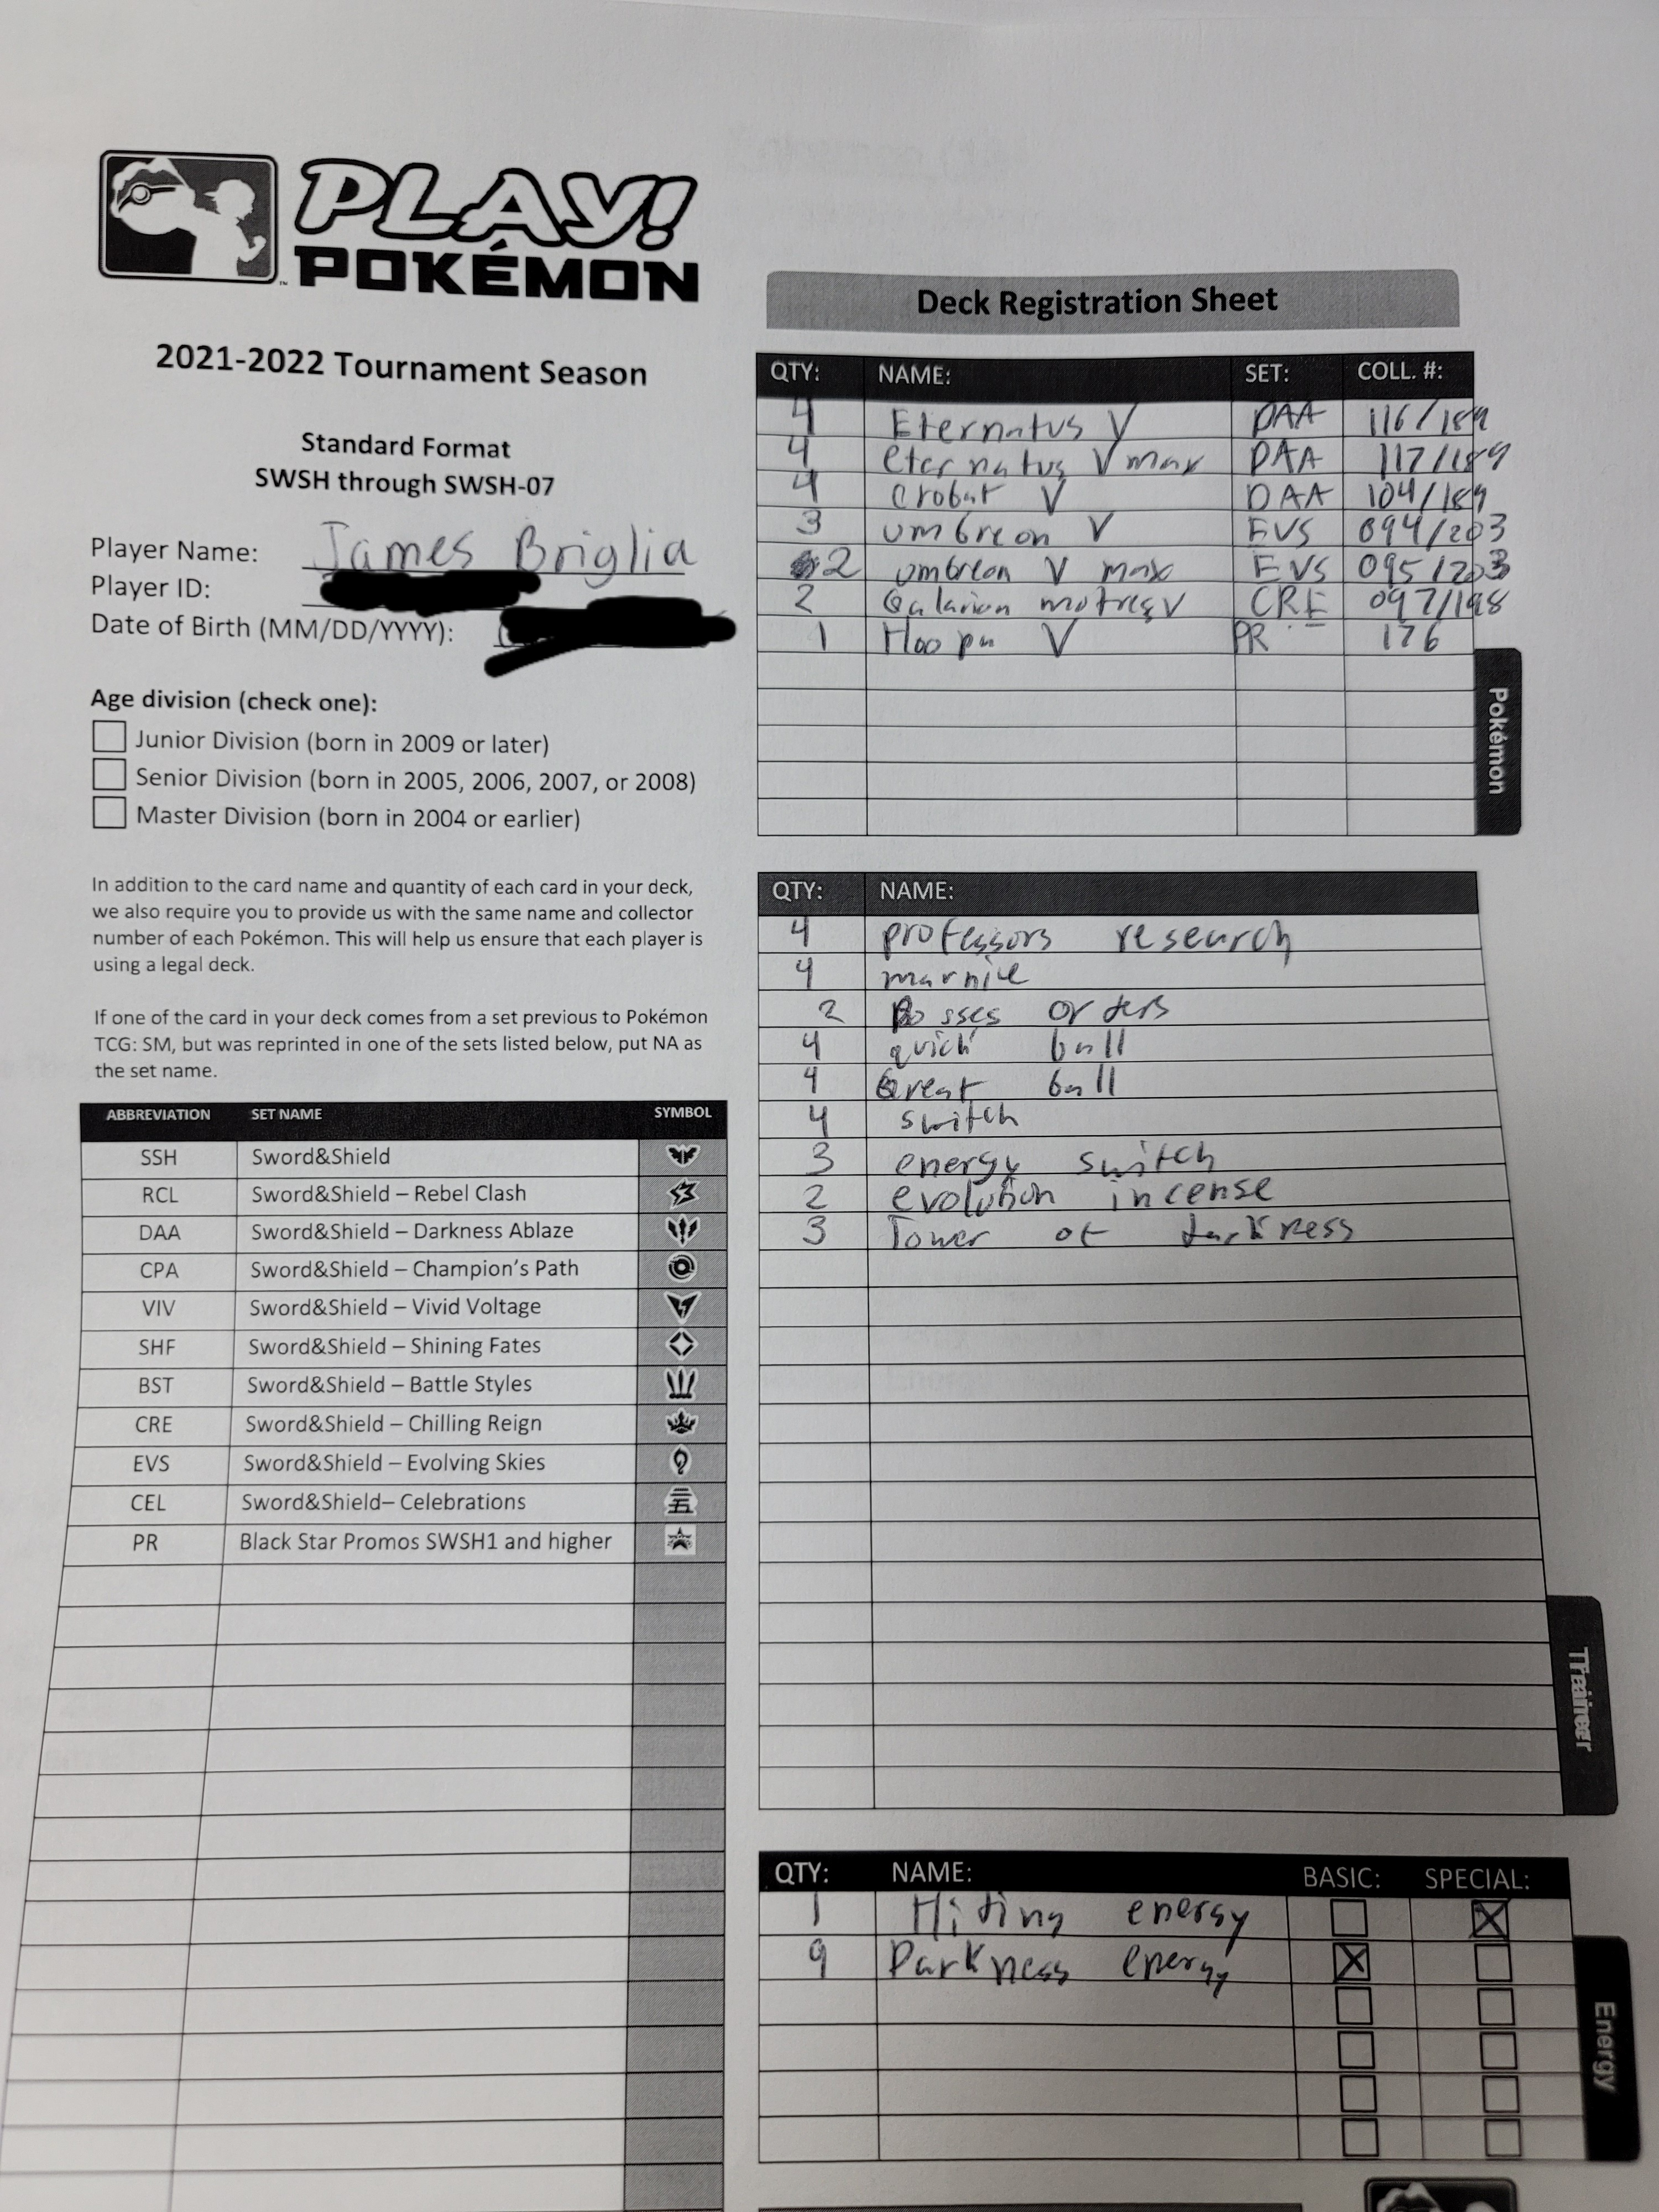 PLAY!
POKÉMON
2021-2022 Tournament Season
Standard Format
SWSH through SWSH-07
Player Name: James Briglia
Player ID:
Date of Birth (MM/DD/YYYY):
Age division (check one):
Junior Division (born in 2009 or later)
Senior Division (born in 2005, 2006, 2007, or 2008)
Master Division (born in 2004 or earlier)
In addition to the card name and quantity of each card in your deck,
we also require you to provide us with the same name and collector
number of each Pokémon. This will help us ensure that each player is
using a legal deck.
If one of the card in your deck comes from a set previous to Pokémon
TCG: SM, but was reprinted in one of the sets listed below, put NA as
the set name.
ABBREVIATION SET NAME SYMBOL
SSH Sword&Shield
RCL Sword&Shield – Rebel Clash
DAA Sword&Shield – Darkness Ablaze
CPA Sword&Shield – Champion's Path
VIV Sword&Shield – Vivid Voltage
SHF Sword&Shield – Shining Fates
BST Sword&Shield – Battle Styles
CRE Sword&Shield – Chilling Reign
EVS Sword&Shield – Evolving Skies
CEL Sword&Shield– Celebrations
PR Black Star Promos SWSH1 and higher
Deck Registration Sheet
QTY: NAME: SET: COLL. #:
4 Eternatus V DAA 116/189
4 eternatus V max DAA 117/189
4 crobat V DAA 104/189
3 umbreon V EVS 094/203
2 umbreon V max EVS 095/203
2 Galarian motres V CRE 097/198
1 Hoopa V PR 176
Pokémon
QTY: NAME:
4 professors research
4 marnie
2 Bosses orders
4 quick ball
4 Great ball
4 switch
3 energy switch
2 evolution incense
3 Tower of darkness
Trainer
QTY: NAME: BASIC: SPECIAL:
1 Hiding energy
9 Darkness energy
Energy